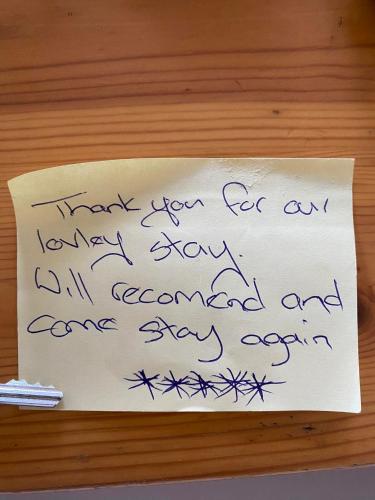 Thank you for our
lovley stay.
Will recomend and
come stay again
*****